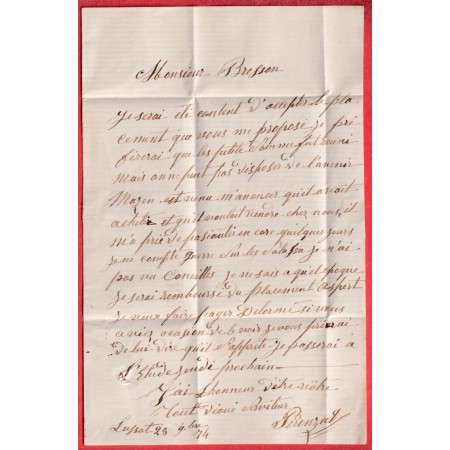 Monsieur Bresson
Je serai été content d'accepter le pla
cement que vous me proposé je pré
fèrerai que les petite somme fut réuni
mais on ne peut pas disposer de l'avenir
Mazen est venu m'anoncer qu'il avait
acheté et qu'il voulait vendre chez nous, il
m'a prié de patienter en core quelque jours
je ne compte guerre sur les
pas vu Coneilles je ne sais a quel époque
je serai remboursé du placement Aspert
je veux faire payer Delorme si vous
aviez ocasion de le voir je vous prierai
de lui dire qu'il s'apprete je passerai à
L'Etude jeudi prochain
J'ai L'honneur d'être votre
tout dévoué serviteur
Lussat 28 9bre 74 Pérouzat